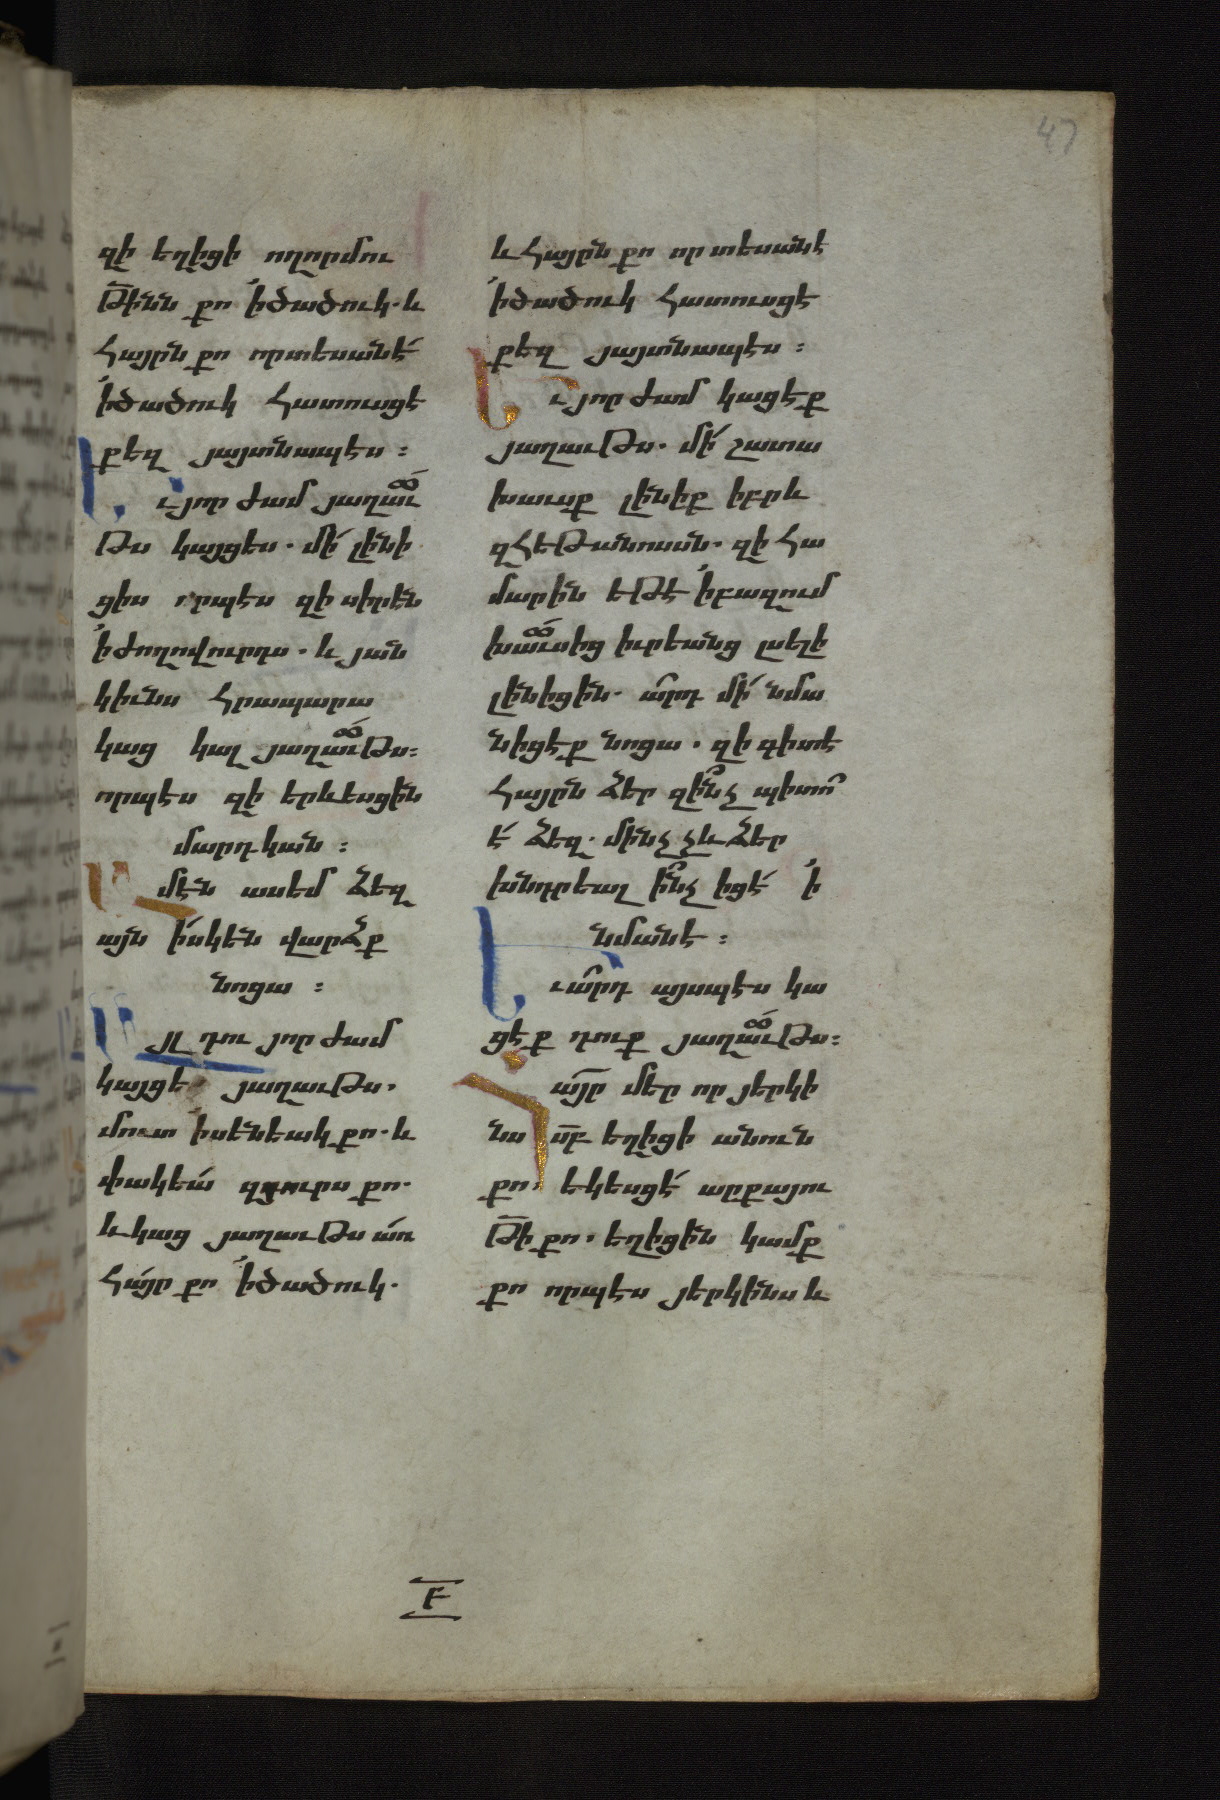 47
զի եղիցի ողորմու
թինն քո ի ծածուկ. և
հայրն քո որ տեսանէ
ի ծածուկ հատուսցէ
քեզ յայտնապէս :
Եւ յորժամ յաղաւ
թս կայցես. մի լինի
ցիս որպէս զի սիրեն
ի ժողովուրդս. և յան
կիւնս հրապարա
կաց կալ յաղաւթս :
որպէս զի երևեսցին
մարդկան :
Ամէն ասեմ ձեզ
այն իսկ են վարձք
նոցա :
Այլ դու յորժամ
կայցե յաղաւթս.
մուտ ի սենեակ քո. և
փակեա զդուրս քո.
և կաց յաղաւթս առ
հայր քո ի ծածուկ.
և հայրն քո որ տեսանէ
ի ծածուկ հատուսցէ
քեզ յայտնապէս :
Եւ յորժամ կացէք
յաղաւթս. մի շատա
խաւսք լինիք իբրև
զհեթանոսսն. զի հա
մարին եթէ ի բազում
խաւսից իւրեանց լսելի
լինիցին. արդ մի նմա
նիցէք նոցա. զի գիտէ
հայրն ձեր զինչ պիտո
է ձեզ. մինչ չև ձեր
խնդրեալ ինչ իցէ ի
նմանէ :
Եւ արդ այսպէս կա
ցէք դուք յաղաւթս :
Հայր մեր որ յերկի
նս սբ եղիցի անուն
քո. եկեսցէ արքայու
թի քո. եղիցին կամք
քո որպէս յերկինս և
Ե